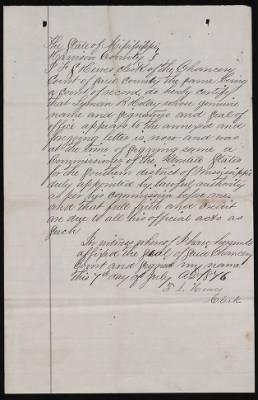 The State of Mississippi
Harrison County
I F S Hewes clerk of the Chancery
Court of said County the same being
a Court of record, do hereby certify
that Lyman R. whose genuine
name and signature and seal of
office appears to the annexed and
foregoing letter is now and was
at the time of signing same a
Commissioner of the United States
for the Southern district of Mississippi
duly appointed by lawful authority
as per his commission before me
and that full faith and credit
are due to all his official acts as
such
In witness whereof I have hereunto
affixed the seal of said Chancery
Court and signed my name
This 7th day of July AD 1876
F. S.
Clerk